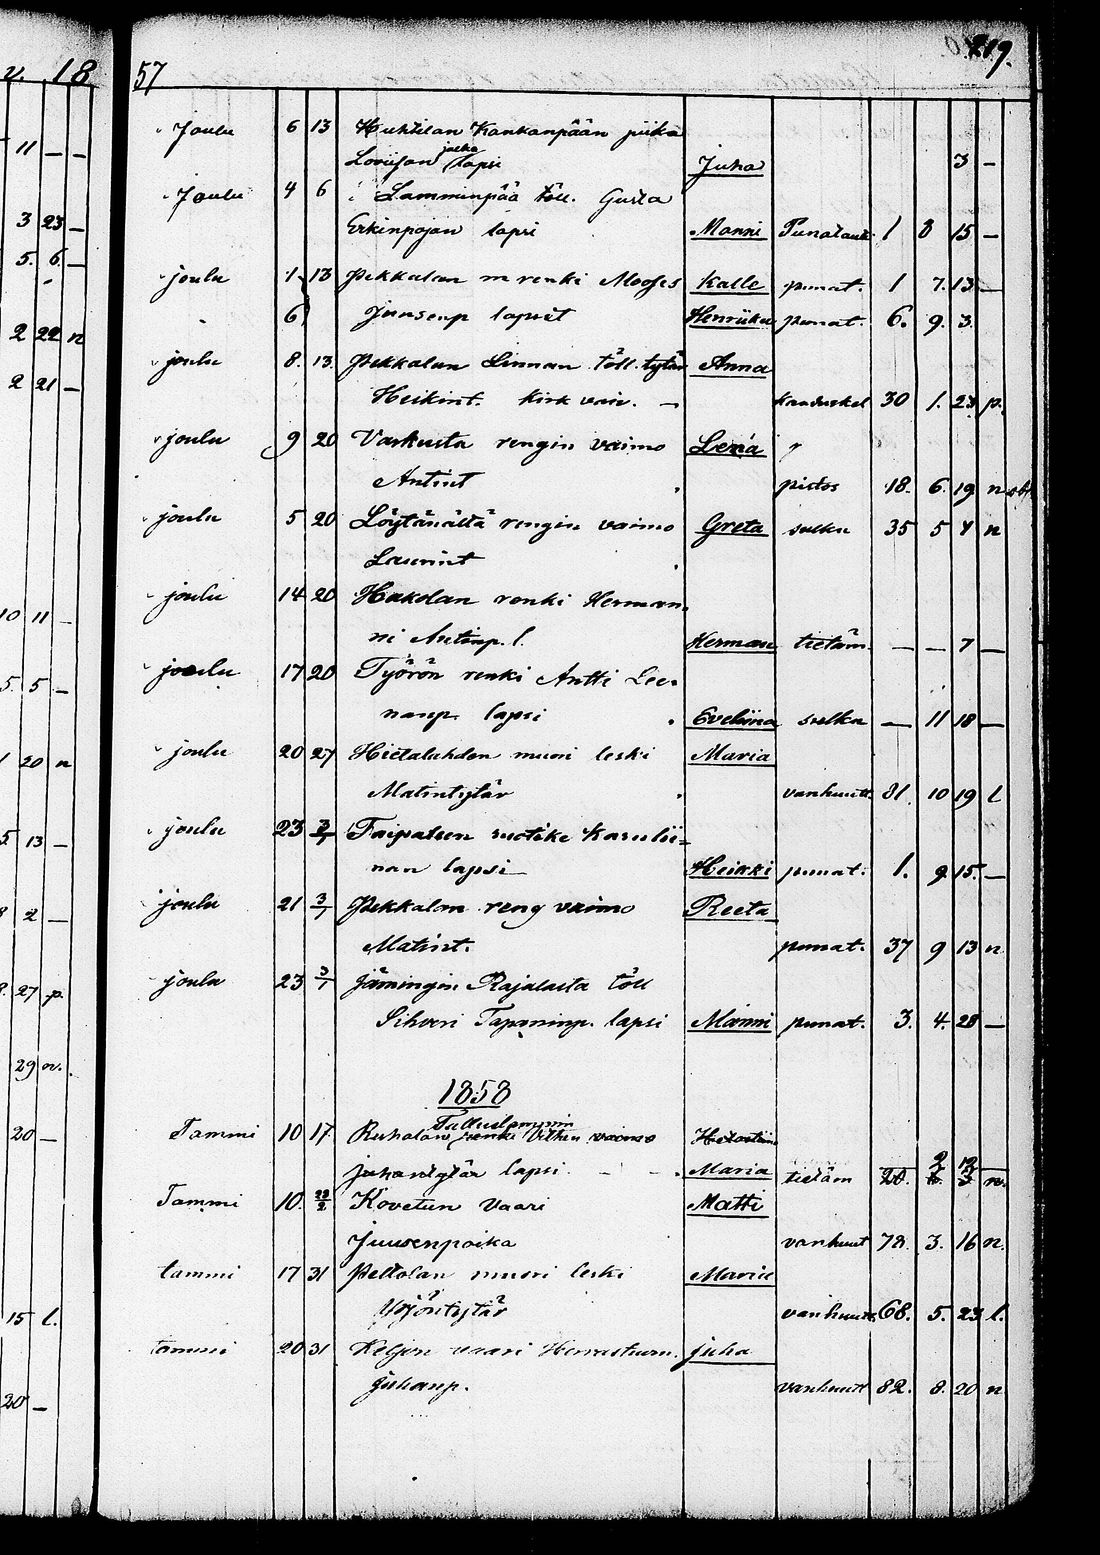 v. 18
57
219.
Joulu 6 13 Huhtilan Kankanpään piika
Loviisan jalka lapsi Juha 3 —
11 — —
Joulu 4 6 Lamminpää töll. Gusta
Erkinpojan lapsi Manni Punataut 1 8 15 —
3 23 —
joulu 1 13 Pekkalan m renki Mooses Kalle punat. 1 7. 13 —
5. 6. —
6 Juusenp lapset Henriika punat. 6. 9. 3.
2 22 n
joulu 8. 13. Pekkalan Linnan töll. tytär Anna
2 21 —
Heikint. Kirk vaiv. — 30 1. 23 p.
joulu 9 20 Varkusta rengin vaimo Lena
Antint pistos 18. 6. 19 n
joulu 5 20 Löytänältä rengin vaimo Greta sulku 35 5 4 n
Laurint
joulu 14 20 Hakolan renki Herman
10 11 —
ni Antinp. l. Herman tietäm. — — 7 —
joulu 17 20 Työrön renki Antti Lee-
5. 5 —
nanp. lapsi Eveliina sulku — 11 18 —
joulu 20 27 Hietalahden muori leski Maria
20 n
Matintytär vanhuutt. 81. 10 19 l
joulu 23 3/1 Taipaleen ruotike Karolii=
5 13 —
nan lapsi Heikki punat. 1. 9. 15. —
joulu 21 3/1 Pekkalan reng vaimo Reeta
8 2 —
Matint. punat. 37 9 13 n
joulu 23 3/1 Jämingin Rajalasta töll
27 p.
Sihveri Tapaninp. lapsi Manni punat. 3. 4. 28 —
29 n.
1858
Tammi 10 17 Ruhalan renki Vilhen vaimo
20 —
Juhantytär lapsi — — Maria tietäm n.
Tammi 10. 29/2 Kovetun Vaari Matti
Juusenpoika vanhuut 78. 3. 16 n.
tammi 17 31 Peltolan muori leski Maria
15 l.
Yrjöntytär vanhuutt. 68. 5. 23 l.
tammi 20 31 Keljon vaari Herrastuom. Juha
Juhanp. vanhuutt 82. 8. 20 n
20 —